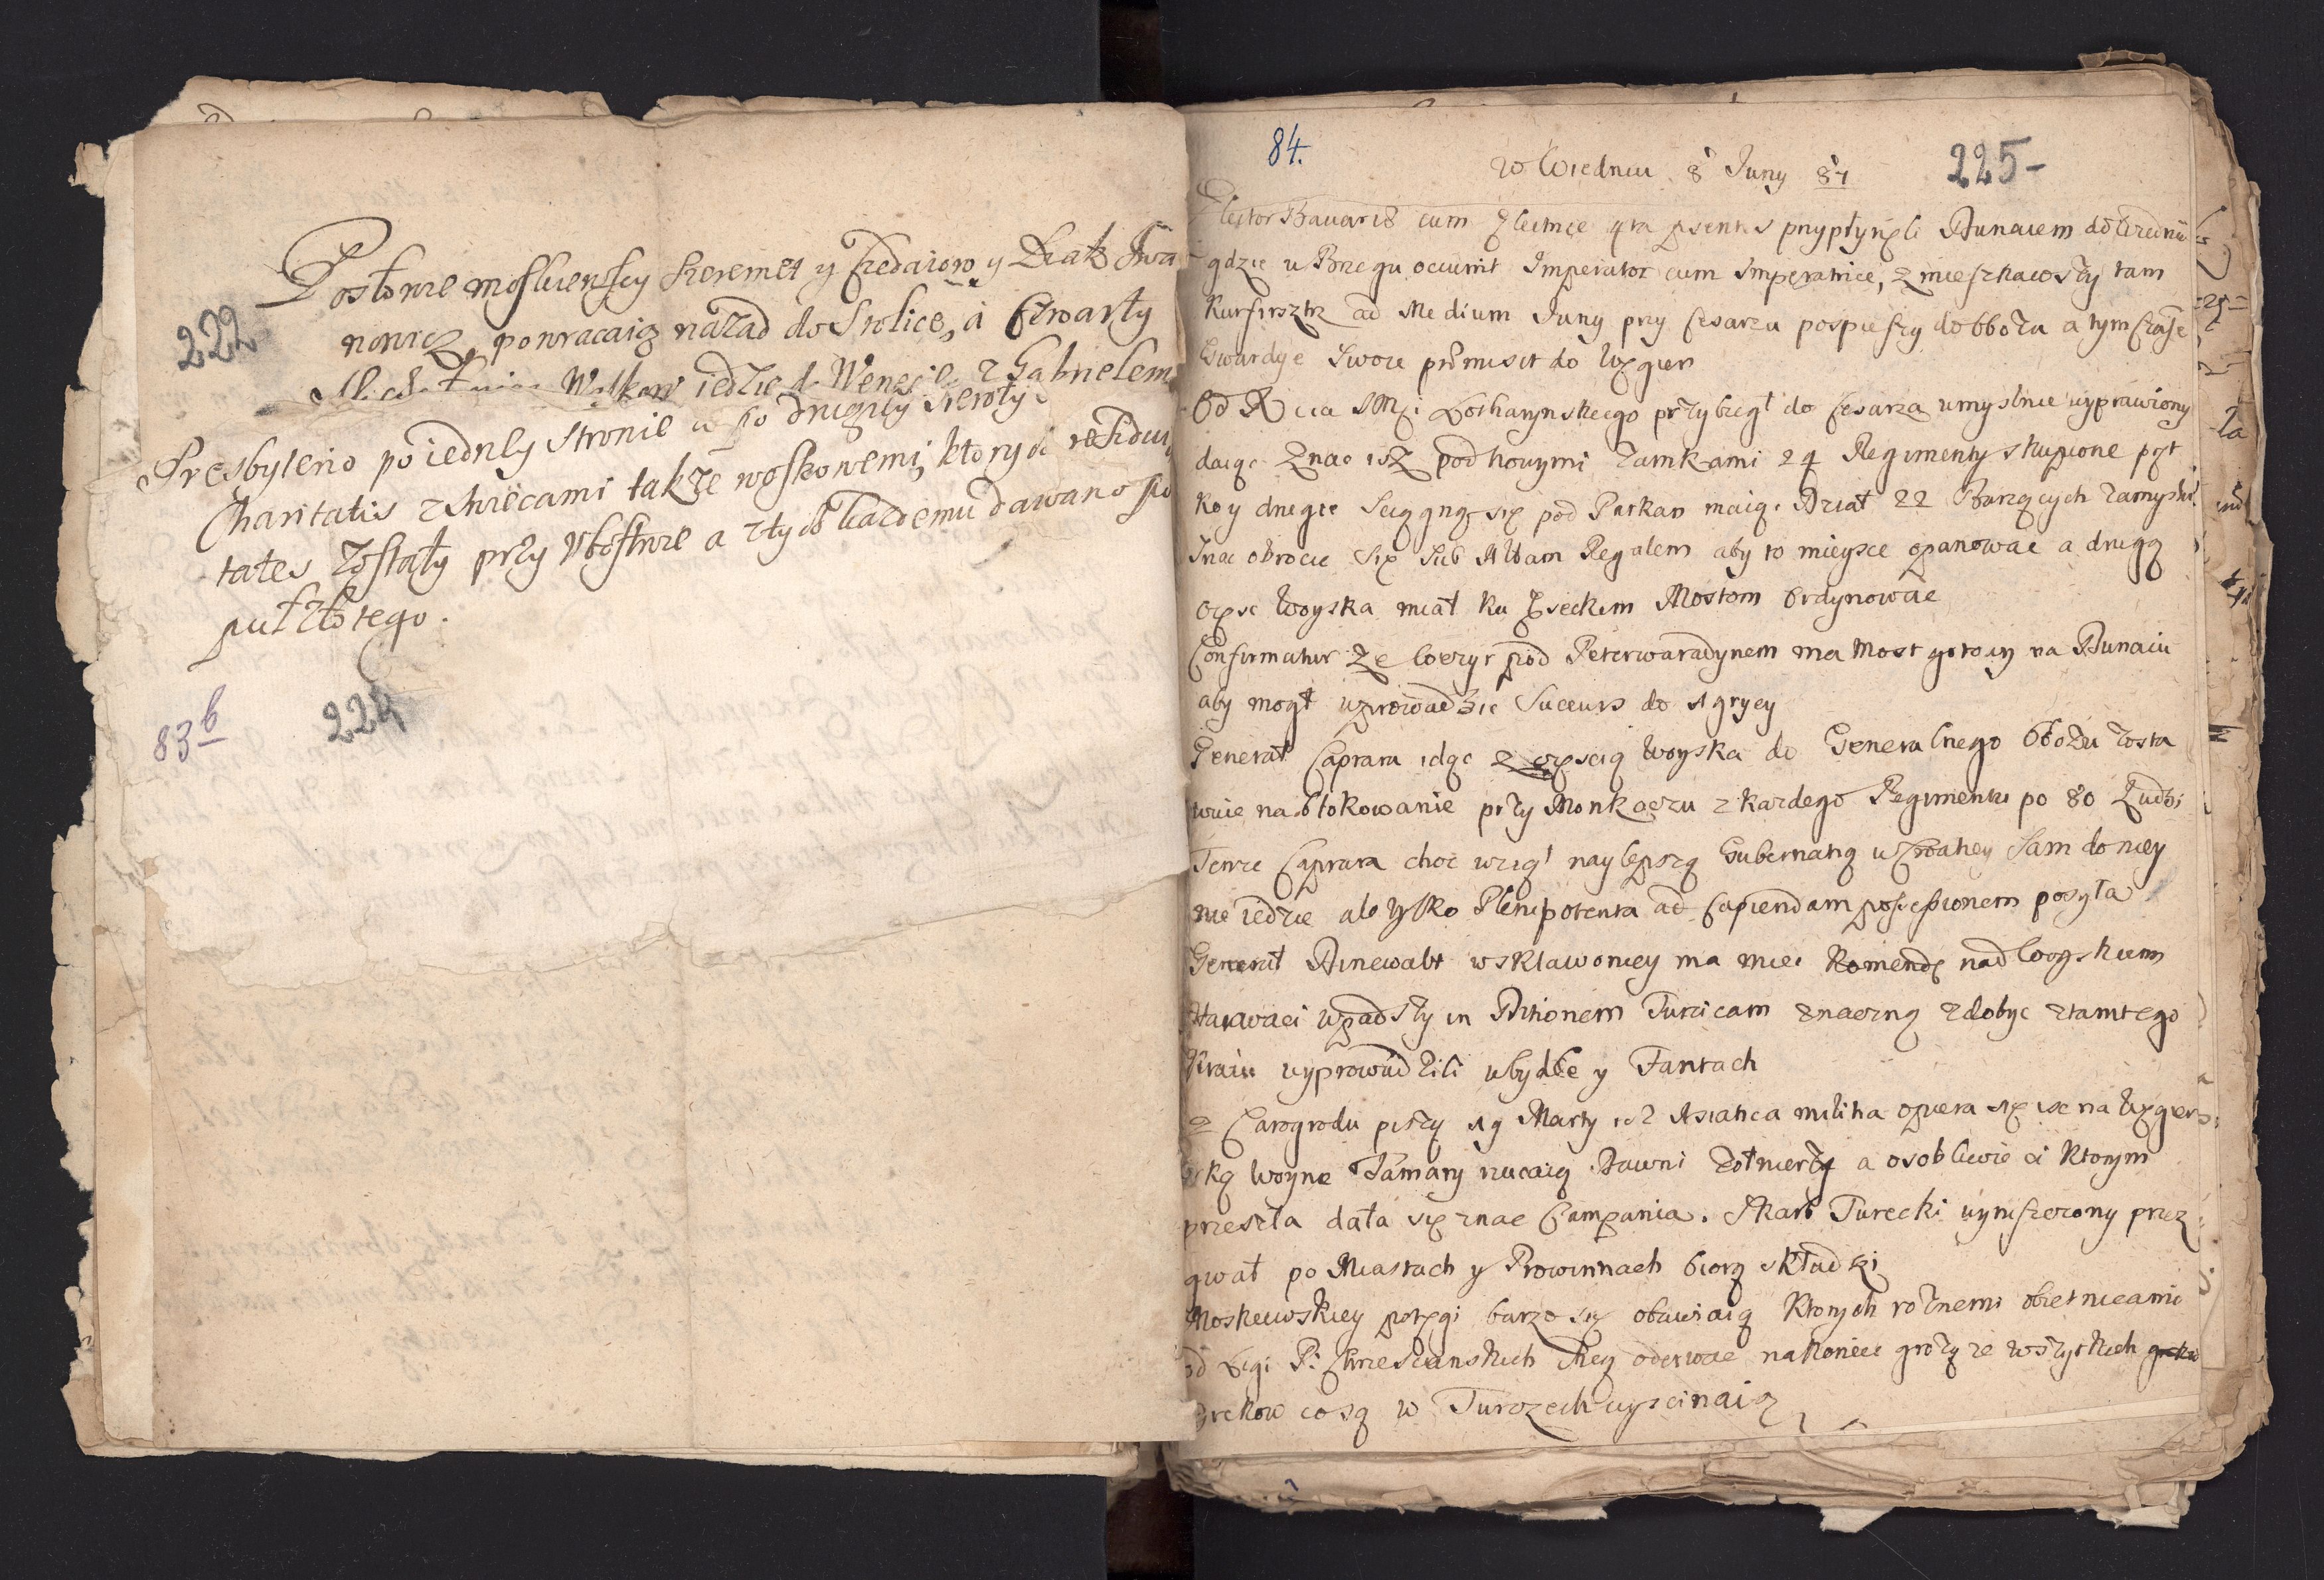 222
Posłowie moskiewscy Szeremet y Czedaiow y Diak Iwa
nowicz powracaią nazad do Stolice, a Czwarty
Wołkow iedzie do Wenecie z Gabrielem
Presbyterio po iedney stronie a po drugiey Sieroty
Charitatis z swiecami także woskowemi, ktorych residui
tates zostały przy Ubostwie a z tych każdemu dawano po
puł złotego.
83b
224
84.
225-
w Wiedniu 8 Juny 87
Elector Bavariæ cum Electrice 4ta præsentis przypłynęli Dunaiem do Wiednia
gdzie u Brzegu occurrit Imperator cum Imperatrice, zmieszkawszy tam
Kurfirsztz ad Medium Juny przy Cesarzu pospieszy do Obozu a tym czase
Gwardye Swoie præmisit do Węgier
Od Xcia JMci Lotharynskiego przybiegł do Cesarza umyslnie wyprawiony
daiąc znac isz pod Nowymi Zamkami 24 Regimenty skupione pot
ko y drugie sciągną się pod Parkan maią. Dział 22 Burzących zamysla
znac obrocic się sub Albam Regalem aby to mieysce opanowac a drugą
częsc Woyska miał ku Esseckim Mostom Ordynowac
Confirmatur że Wezyr pod Peterwaradynem ma most gotowy na Dunaiu
aby mogł wprowadzic Succurs do Agryey
Generał Caprara idąc z częscią Woyska do Generalnego Obozu zosta
wuie na blokowanie przy Monkaczu z kazdego Regimentu po 80 Ludzi
Tenze Caprara choc wziął naylepszą Gubernatią w Kroatiey sam do niey
nie iedzie ale tylko Plenipotenta ad capiendam possessionem posyła
Generał Dinewalt w Sklawoniey ma miec Komendę nad Woyskiem
Harwaci wpadszy in Ditionem Turcicam znaczną zdobyc z tamtego
Kraiu wyprowadzili w bydle y Fantach
z Carogrodu piszą 19 Marty isz Asiatica militia opiera się isc na Węgiers
ską Woynę Tamary rucaią. Dawni Zołnierzy a osobliwie ci ktorym
przeszła dała się znac Campania. Skarb Turecki wyniszczony prze
gwał po Miastach y Prowinciach biorą składki
Moskiewskiey potęgi barzo się obawiaią ktorych roznemi obietnicami
od Ligi P: Chrzescianskich chcą oderwac na koniec grożą ze wszytkich
Grekow co są w Turczech wyscinaią